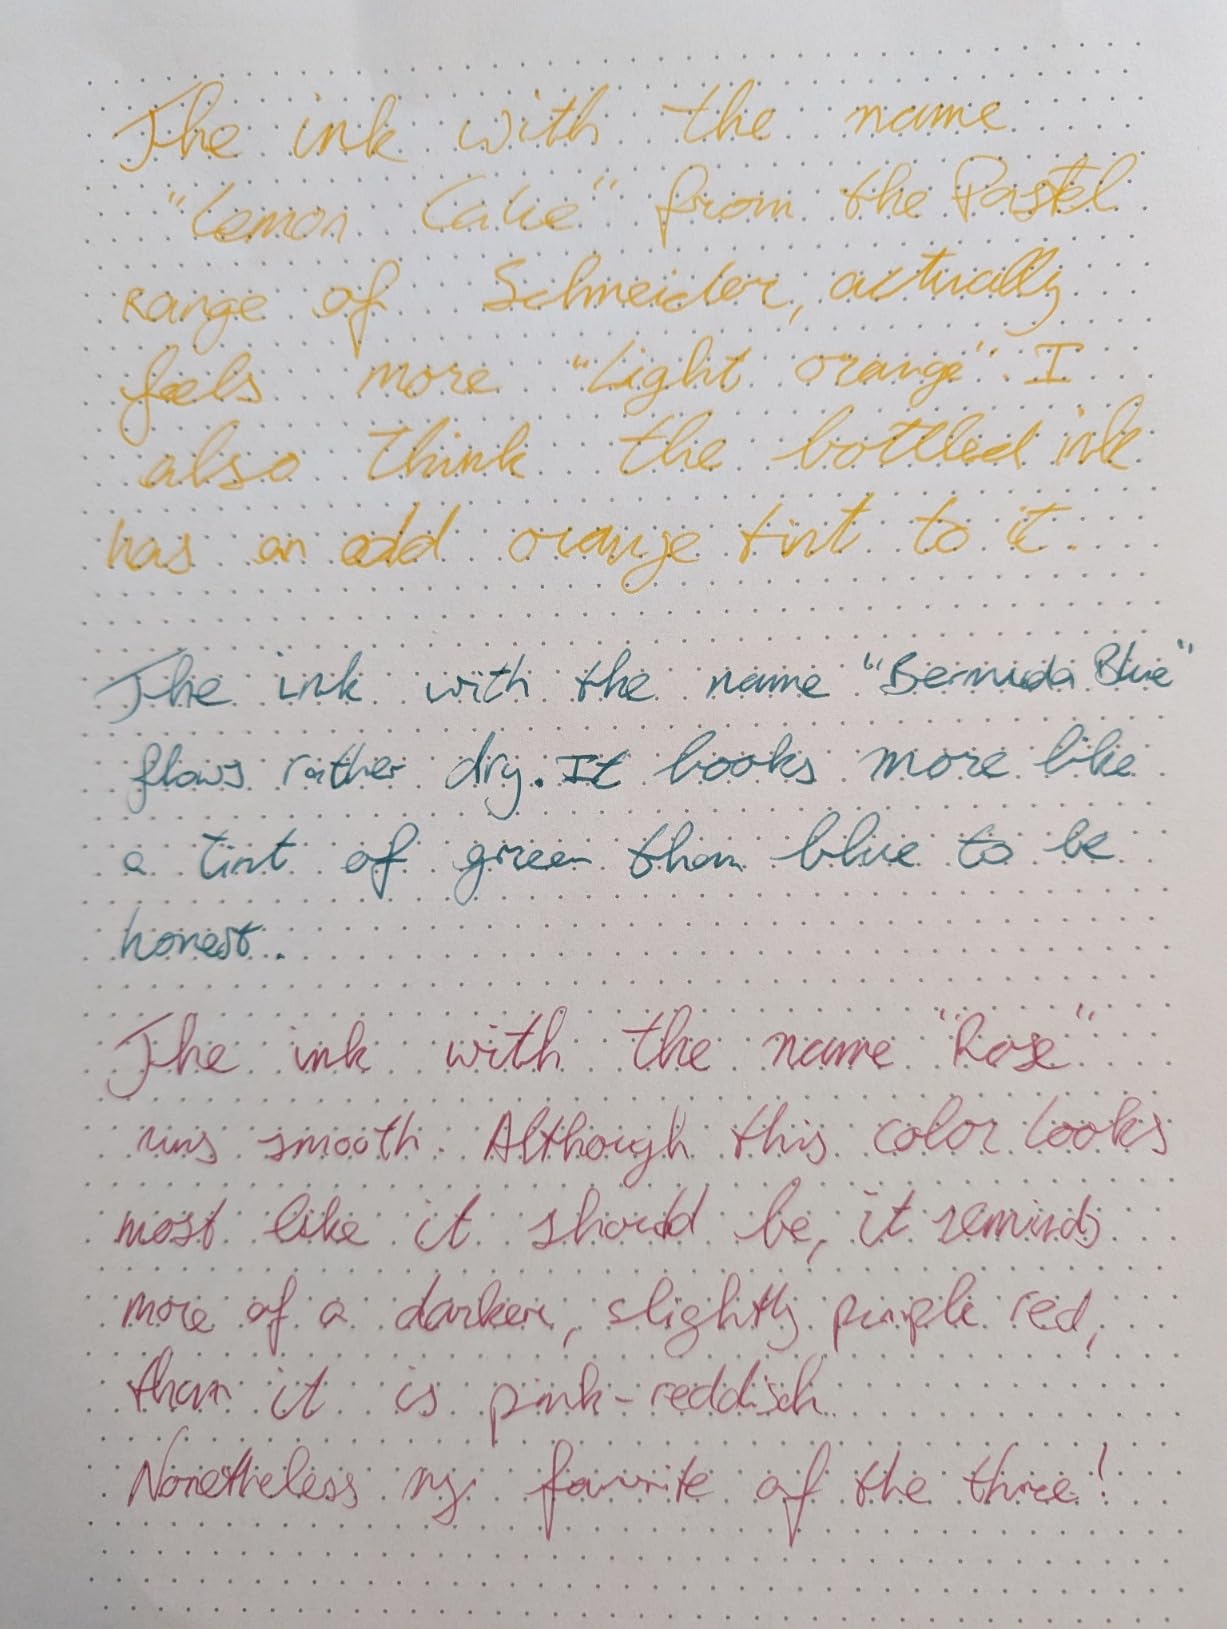 The ink with the name
"Lemon Cake" from the Pastel
range of Schneider, actually
feels more "Light orange". I
also think the bottled ink
has an odd orange tint to it.
The ink with the name "Bermuda Blue"
flows rather dry. It looks more like
a tint of green than blue to be
honest..
The ink with the name "Rose"
runs smooth. Although this color looks
most like it should be, it reminds
more of a darker, slightly purple red,
than it is pink-reddisch
Nonetheless my favorite of the three!